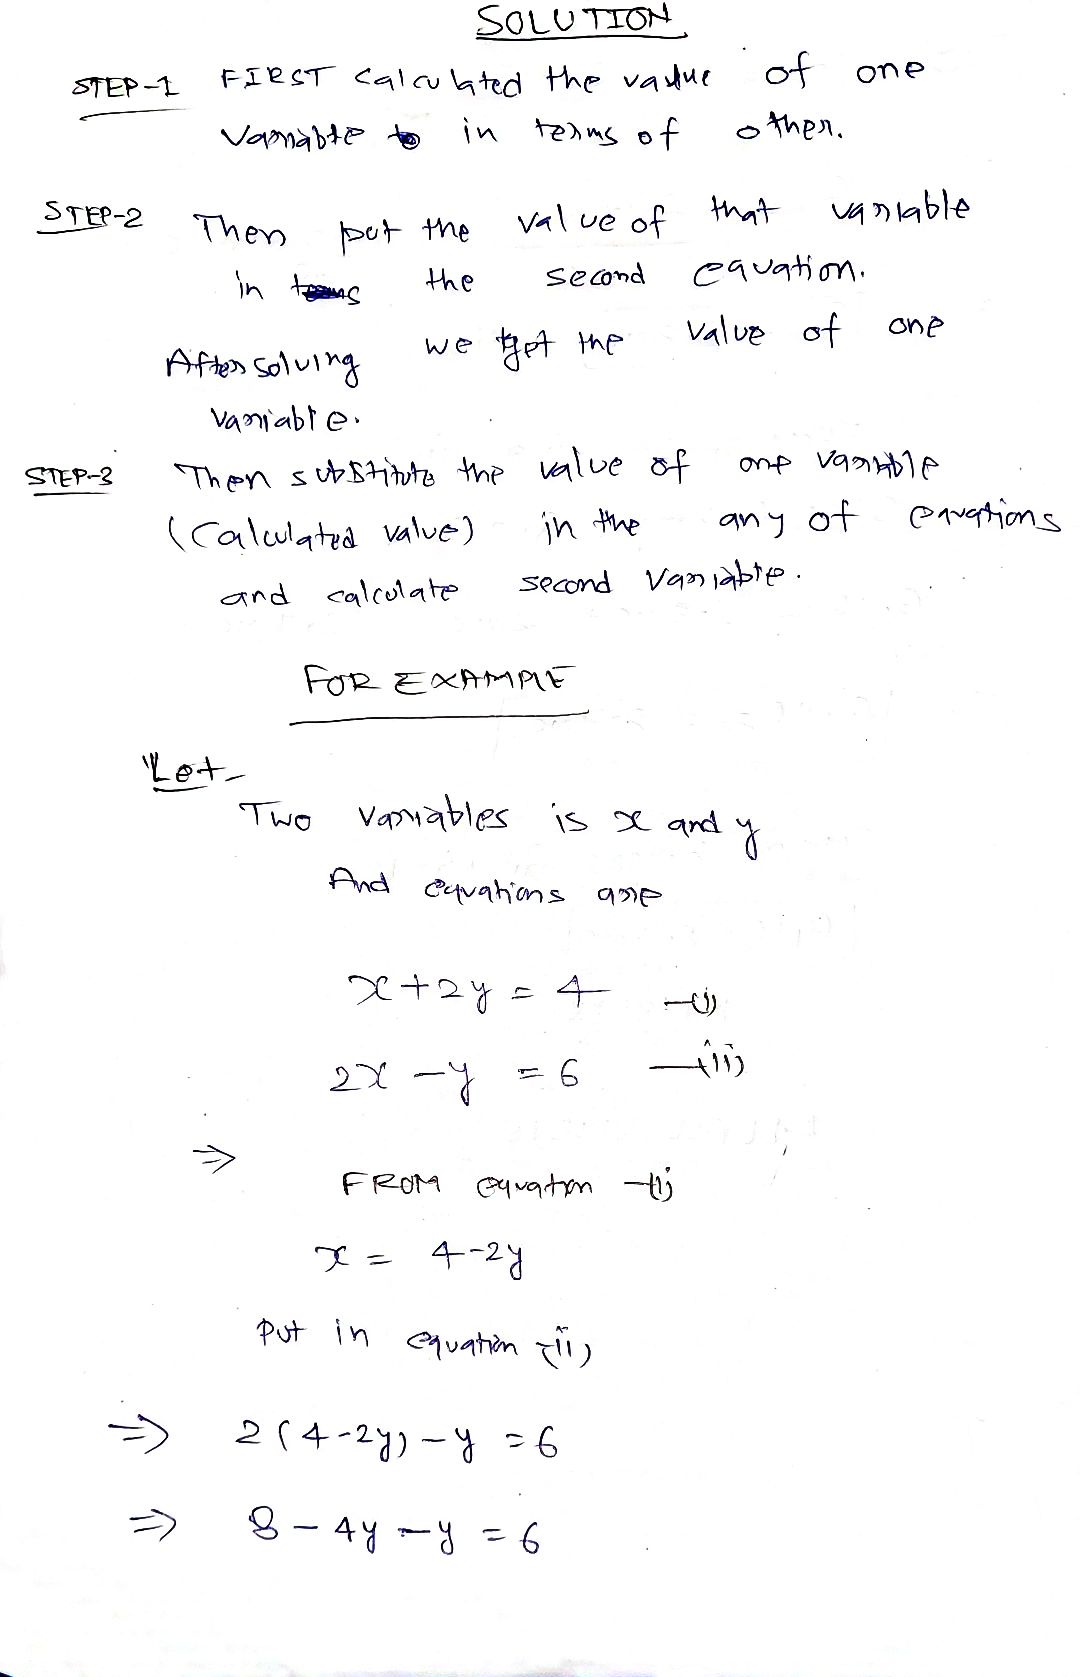 SOLUTION
STEP-1 FIRST calculated the value of one
Variable in terms of other.
STEP-2 Then put the value of that variable
in the second equation.
After solving we get the value of one
variable.
STEP-3 Then substitute the value of one variable
(Calculated value) in the any of equations
and calculate second variable.
FOR EXAMPLE
Let-
Two variables is x and y
And equations are
x+2y = 4 —(i)
2x - y = 6 —(ii)
⇒
FROM equation -(i)
x = 4-2y
Put in equation -(ii)
⇒ 2(4-2y) - y = 6
⇒ 8 - 4y - y = 6